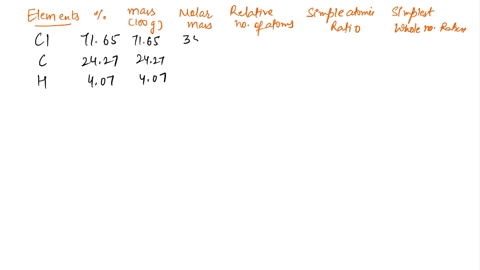 Elements % mass (100g) Molar mass Relative no. of atoms Simple atomic Ratio Simplest Whole no. Ratio
Cl 71.65 71.65 35
C 24.27 24.27
H 4.07 4.07